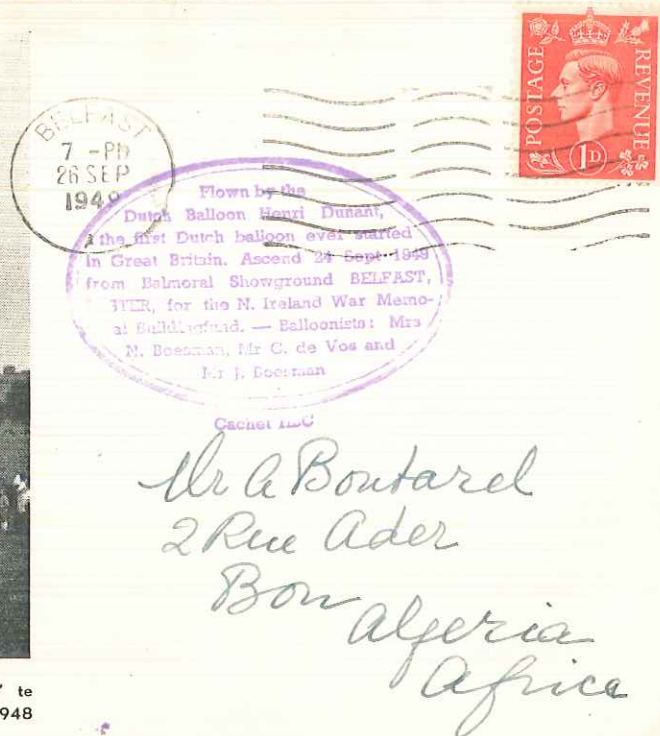 POSTAGE REVENUE
1D
BELFAST
7 - PM
26 SEP
1949
Flown by the
Dutch Balloon Henri Dunant,
the first Dutch balloon ever started
in Great Britain. Ascend 24 Sept 1949
from Balmoral Showground BELFAST,
for the N. Ireland War Memo-
Buildingfund. — Balloonists: Mrs
N. Boesman, Mr C. de Vos and
Mr J. Boesman
Cachet
Mr A Boutarel
2 Rue Ader
Bon
Algeria
Africa
te
948